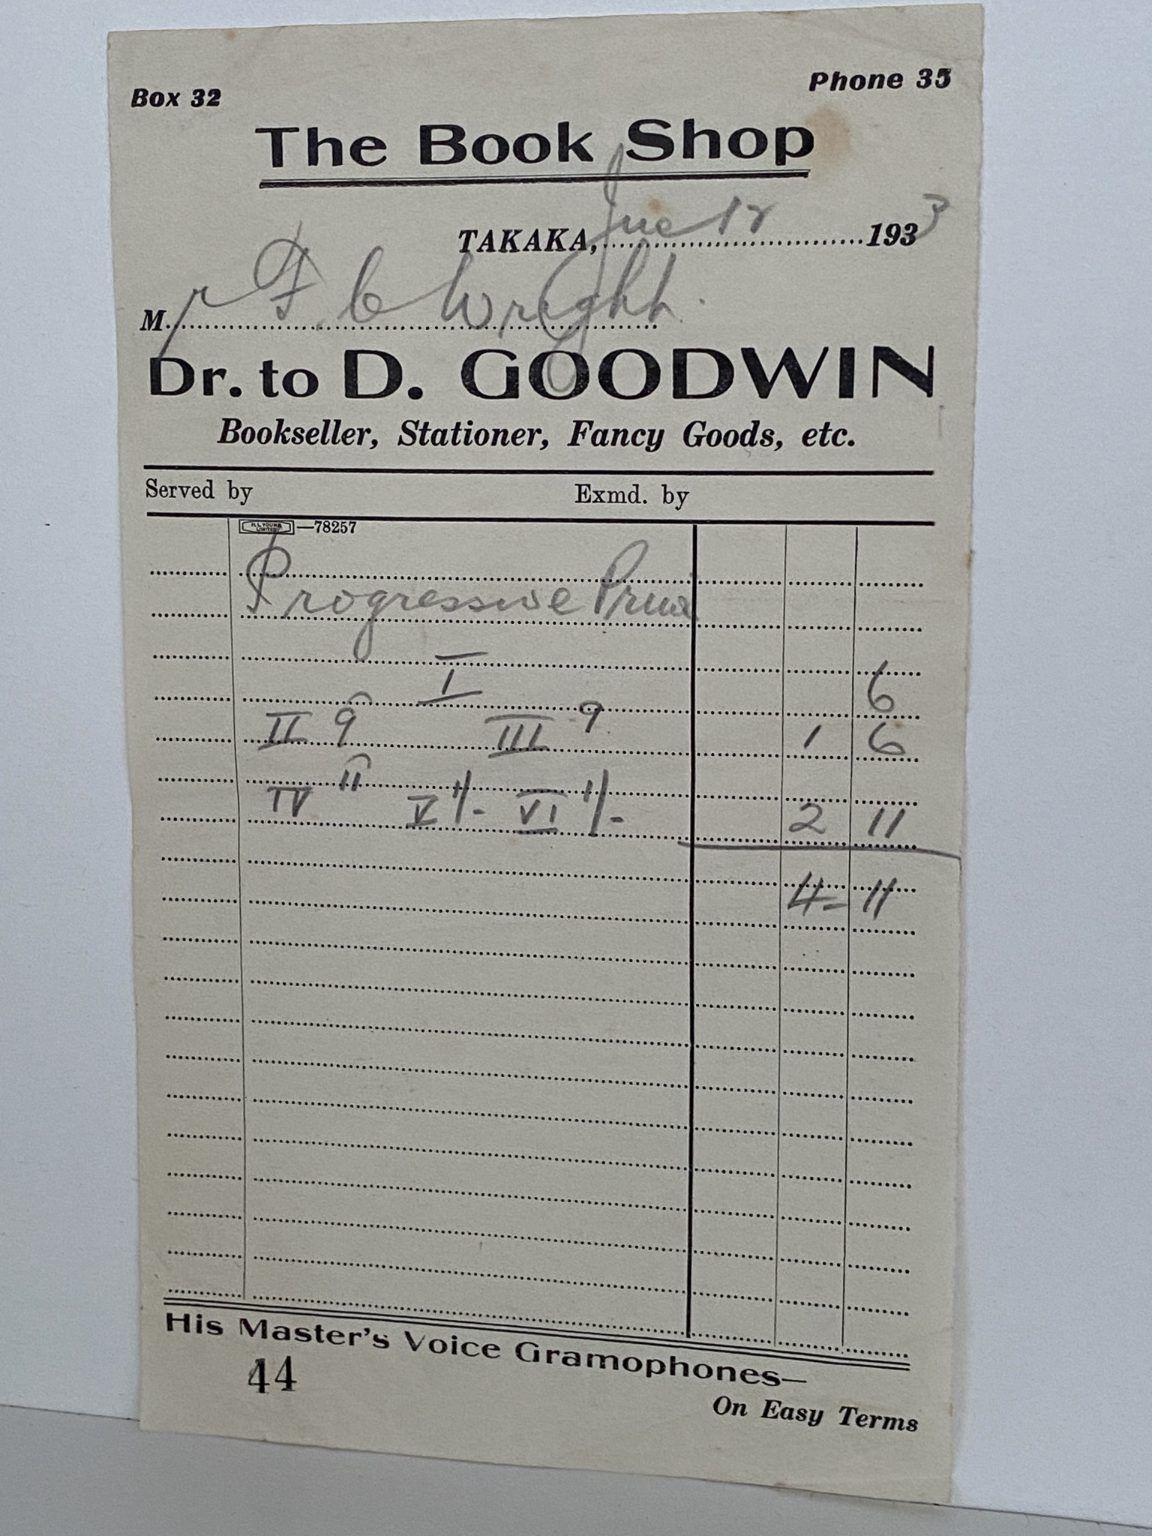 Box 32
Phone 35
The Book Shop
TAKAKA, June 12 1933
Mr F. C Wright.
Dr. to D. GOODWIN
Bookseller, Stationer, Fancy Goods, etc.
Served by Exmd. by
—78257
Progressive
I 6
II 9 III 9 1 6
IV 11 V 1/- VI 1/- 2 11
4 - 11
His Master's Voice Gramophones—
44
On Easy Terms